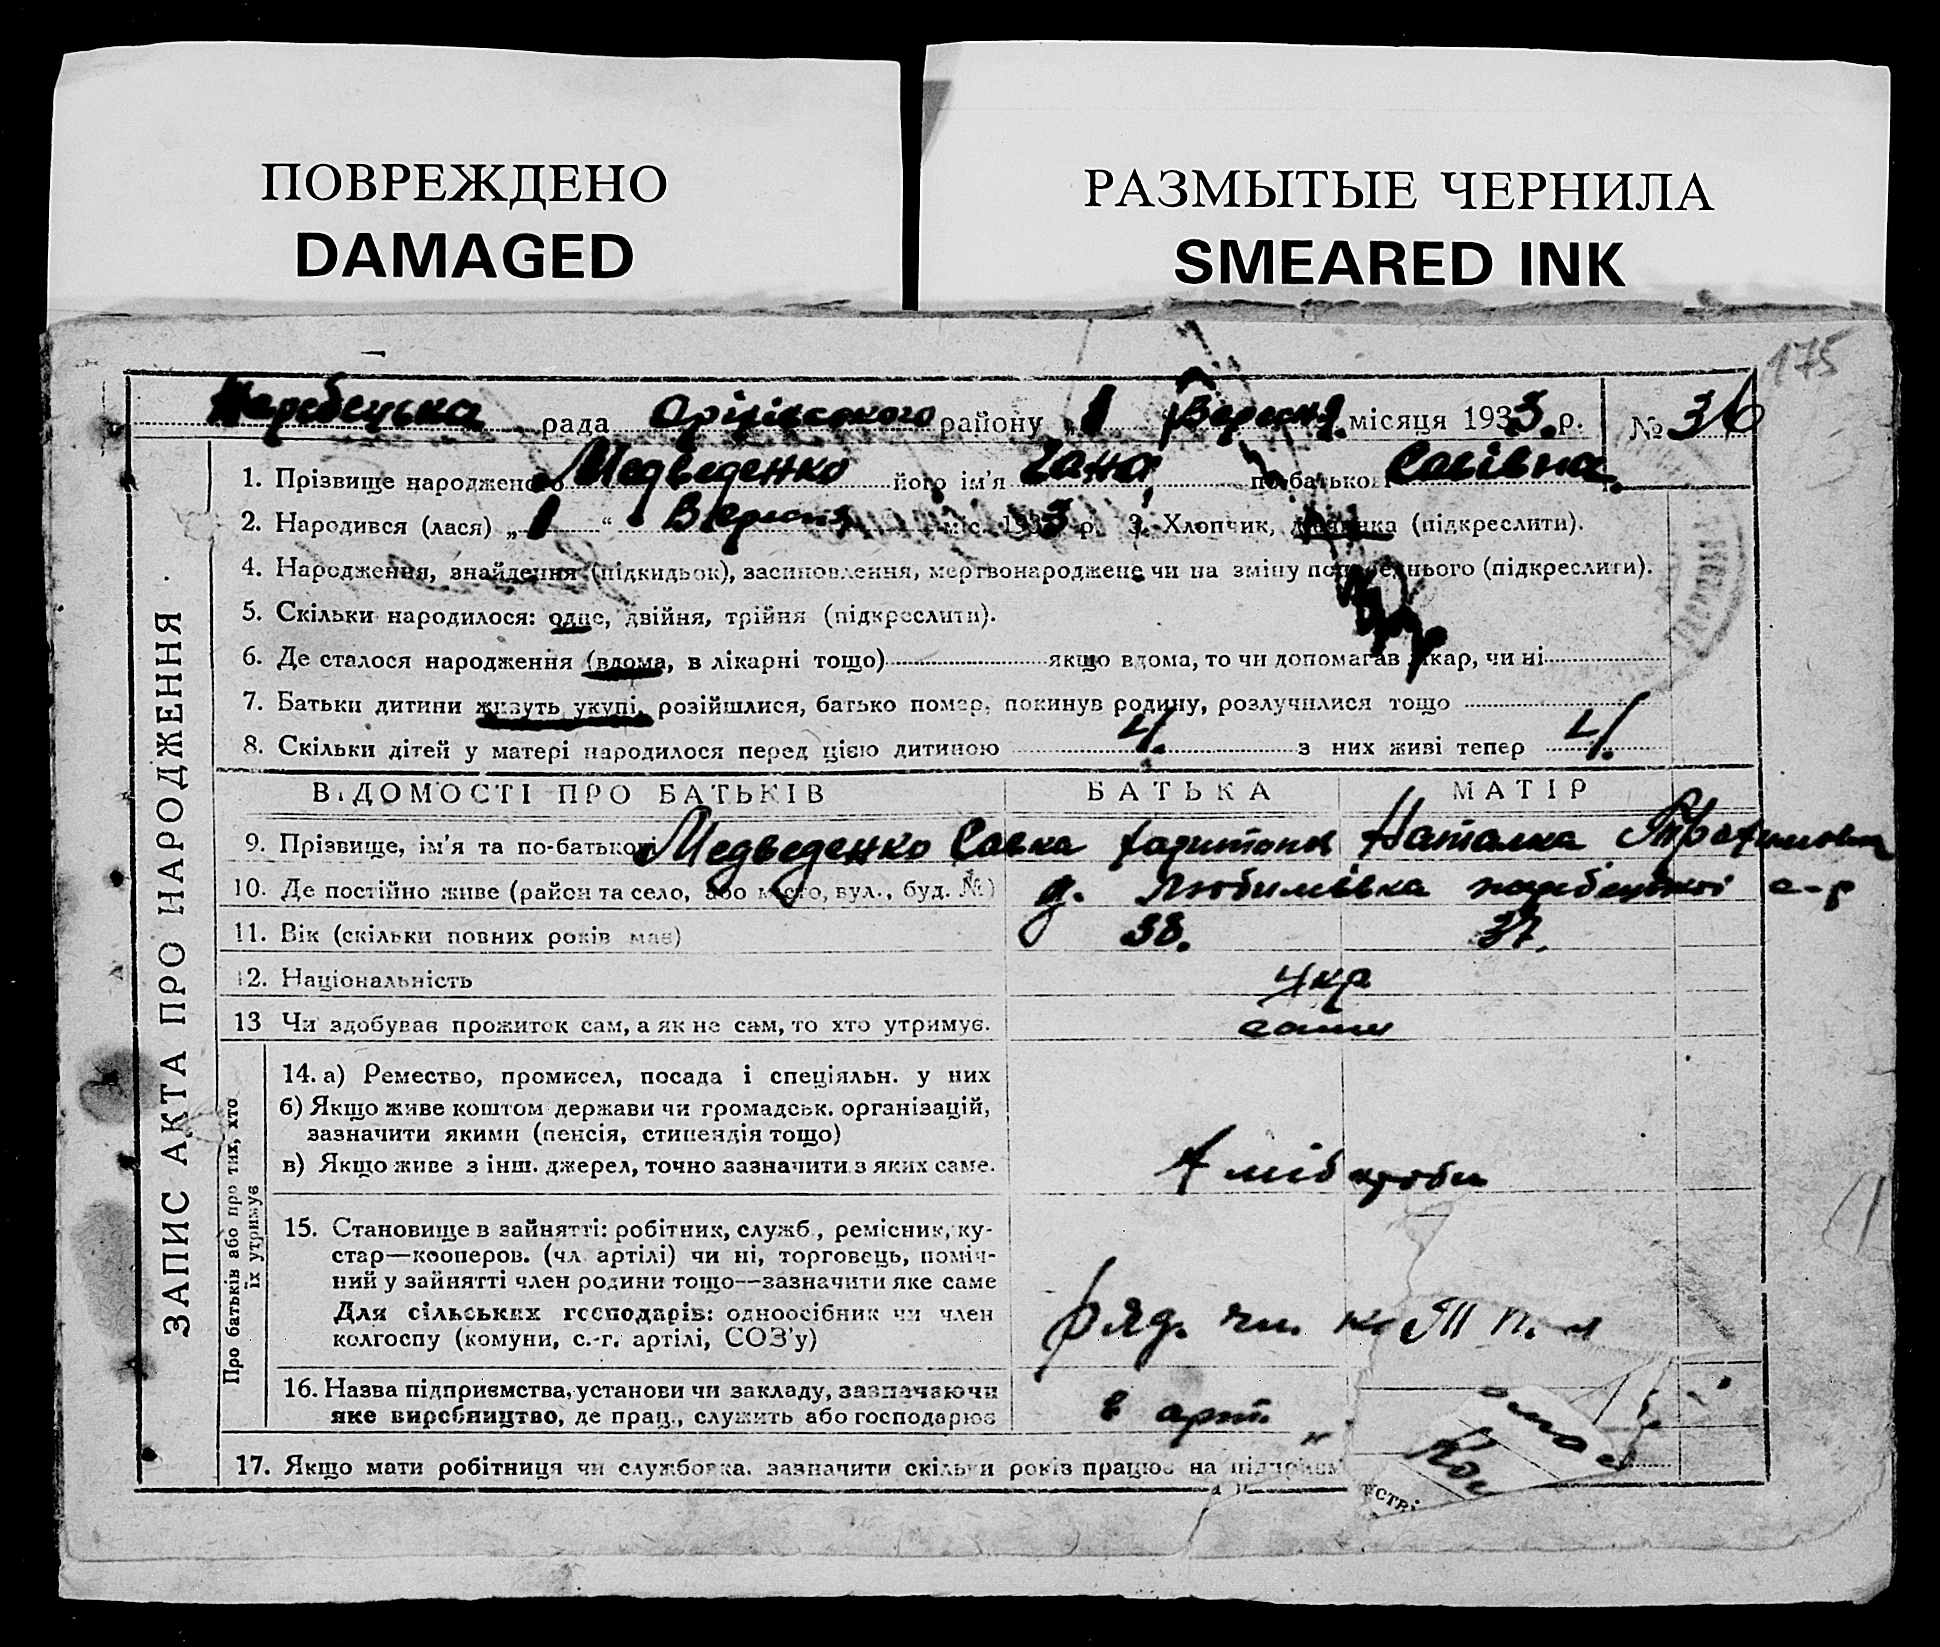 ПОВРЕЖДЕНО
DAMAGED
РАЗМЫТЫЕ ЧЕРНИЛА
SMEARED INK
175
рада Оріхівського району „1“ Вересня місяця 1933 р. № 36
ЗАПИС АКТА ПРО НАРОДЖЕННЯ
1. Прізвище народженого Медведенко його ім'я Гана по-батькові Савівна
2. Народився (лася) „1“ Вересня міс. 1933 р. 3. Хлопчик, дівчинка (підкреслити).
4. Народження, знайдення (підкидьок), засиновлення, мертвонароджене чи на зміну попереднього (підкреслити).
5. Скільки народилося: одне, двійня, трійня (підкреслити).
6. Де сталося народження (вдома, в лікарні тощо) якщо вдома, то чи допомагав лікар, чи ні
7. Батьки дитини живуть укупі, розійшлися, батько помер, покинув родину, розлучилися тощо
8. Скільки дітей у матері народилося перед цією дитиною 4. з них живі тепер 4.
ВІДОМОСТІ ПРО БАТЬКІВ БАТЬКА МАТІР
9. Прізвище, ім'я та по-батькові Медведенко Савка Харитонов Наталка
10. Де постійно живе (район та село, або місто, вул., буд. №) д. Любимівка с-р
11. Вік (скільки повних років має) 38. 37.
12. Національність Укр
13 Чи здобував прожиток сам, а як не сам, то хто утримує. сами
Про батьків або про тих, хто
їх утримує
14. а) Ремество, промисел, посада і спеціяльн. у них
б) Якщо живе коштом держави чи громадськ. організацій,
зазначити якими (пенсія, стипендія тощо)
в) Якщо живе з інш. джерел, точно зазначити з яких саме.
Хлібороби
15. Становище в зайнятті: робітник, служб., ремісник, ку-
стар—кооперов. (чл. артілі) чи ні, торговець, поміч-
ний у зайнятті член родини тощо—зазначити яке саме
Для сільських господарів: одноосібник чи член
колгоспу (комуни, с.-г. артілі, СОЗ'у)
ряд. чл.
16. Назва підприємства, установи чи закладу, зазначаючи
яке виробництво, де прац., служить або господарює
в арт.
17. Якщо мати робітниця чи службовка, зазначити скільки років працює на підприєм